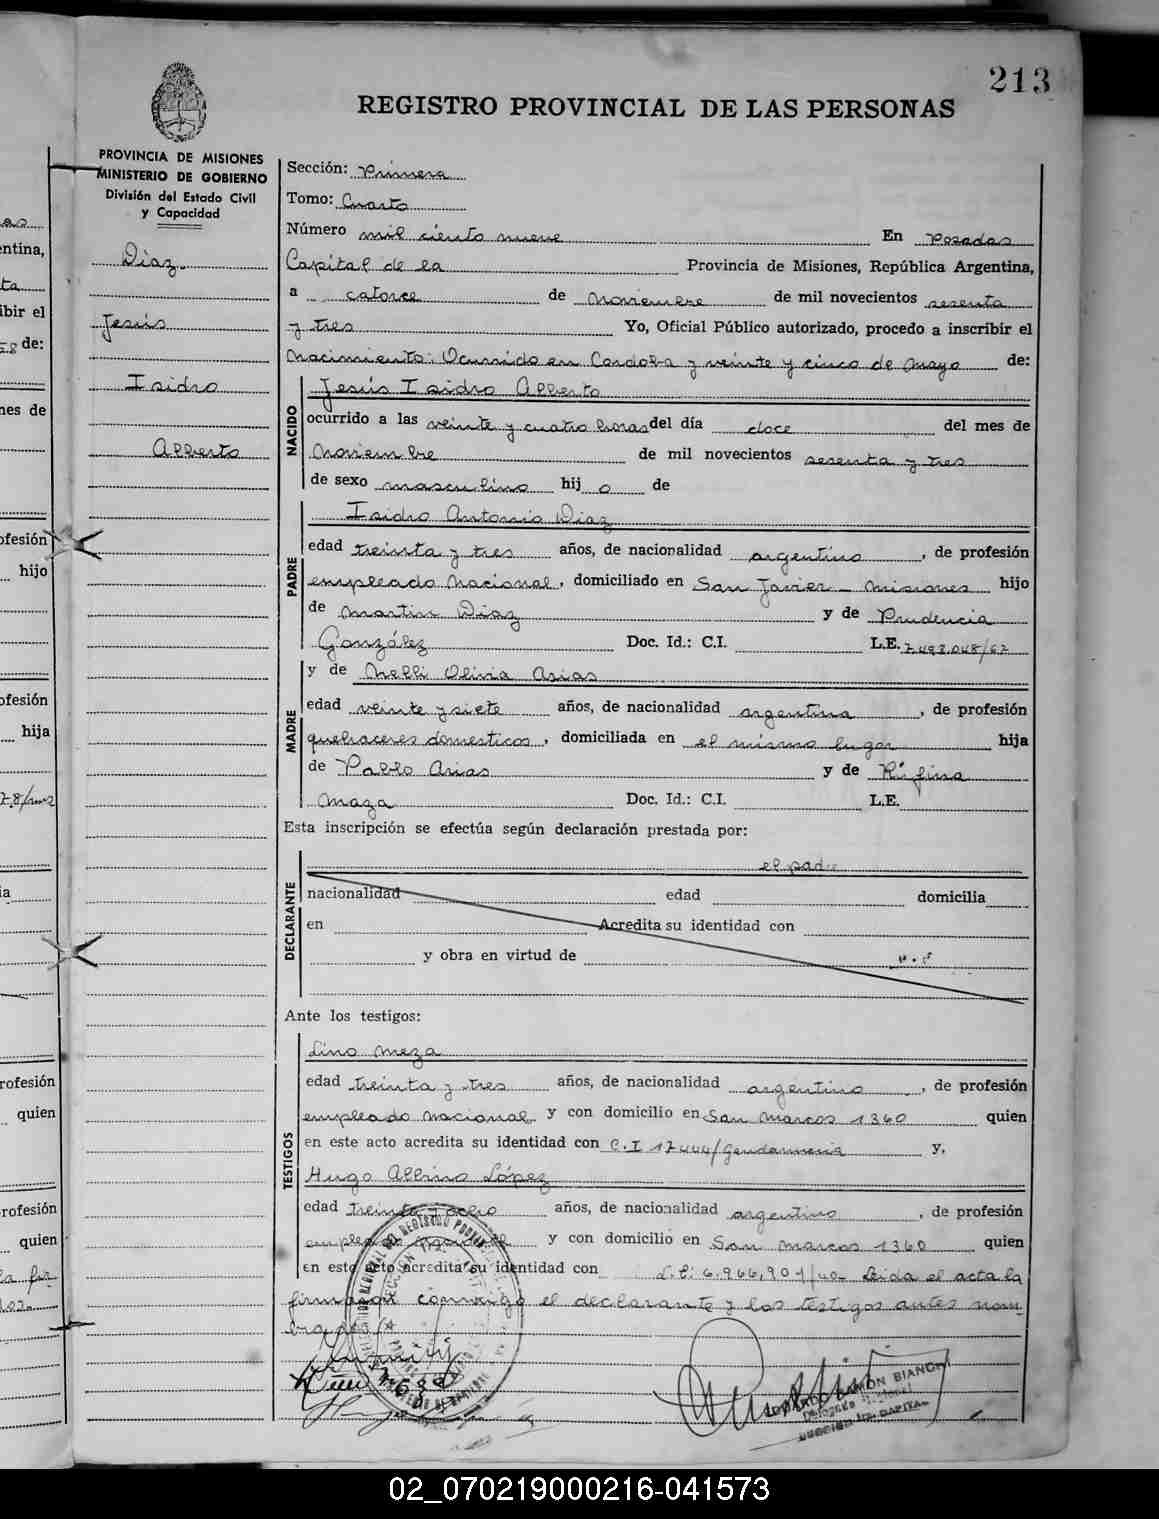 213
REGISTRO PROVINCIAL DE LAS PERSONAS
PROVINCIA DE MISIONES
MINISTERIO DE GOBIERNO
División del Estado Civil
y Capacidad
Diaz
Jesús
Isidro
Alberto
Sección: Primera
Tomo: Cuarto
Número mil ciento nueve En Posadas
Capital de la Provincia de Misiones, República Argentina,
a catorce de Noviembre de mil novecientos sesenta
y tres Yo, Oficial Público autorizado, procedo a inscribir el
Nacimiento: Ocurrido en Cordoba y veinte y cinco de Mayo de:
NACIDO
Jesús Isidro Alberto
ocurrido a las veinte y cuatro horas del día doce del mes de
Noviembre de mil novecientos sesenta y tres
de sexo masculino hijo de
PADRE
Isidro Antonio Diaz
edad treinta y tres años, de nacionalidad argentino, de profesión
empleado Nacional, domiciliado en San Javier - Misiones hijo
de Martin Diaz y de Prudencia
González Doc. Id.: C.I. L.E. 7.493.048/62
y de Nelli Olivia Arias
MADRE
edad veinte y siete años, de nacionalidad argentina, de profesión
quehaceres domesticos, domiciliada en el mismo lugar hija
de Pablo Arias y de Rufina
Maza Doc. Id.: C.I. L.E.
Esta inscripción se efectúa según declaración prestada por:
DECLARANTE
el padre
nacionalidad edad domicilia
en Acredita su identidad con
y obra en virtud de
Ante los testigos:
TESTIGOS
Lino Meza
edad treinta y tres años, de nacionalidad argentino, de profesión
empleado nacional y con domicilio en San Marcos 1360 quien
en este acto acredita su identidad con C.I 17444/Gendarmeria y,
Hugo Albino López
edad treinta y ocho años, de nacionalidad argentino, de profesión
empleado nacional y con domicilio en San Marcos 1360 quien
en este acto acredita su identidad con L.E: 6.966.901/40 Leida el acta la
firman conmigo el declarante y los testigos antes nom
brados
RAMON BIANCHI
CAPITAL
02_070219000216-041573